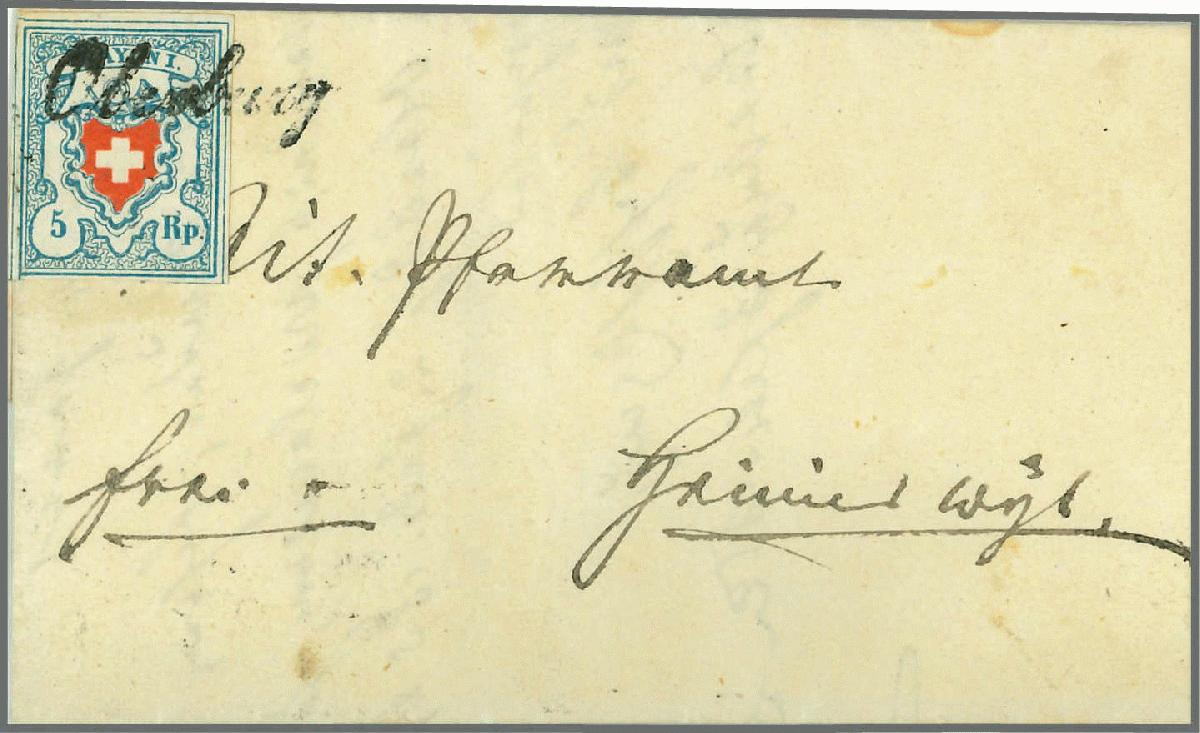 RAYON I.
Oberburg
5 Rp.
Tit. Pfarramt
frei.
Heimiswyl.